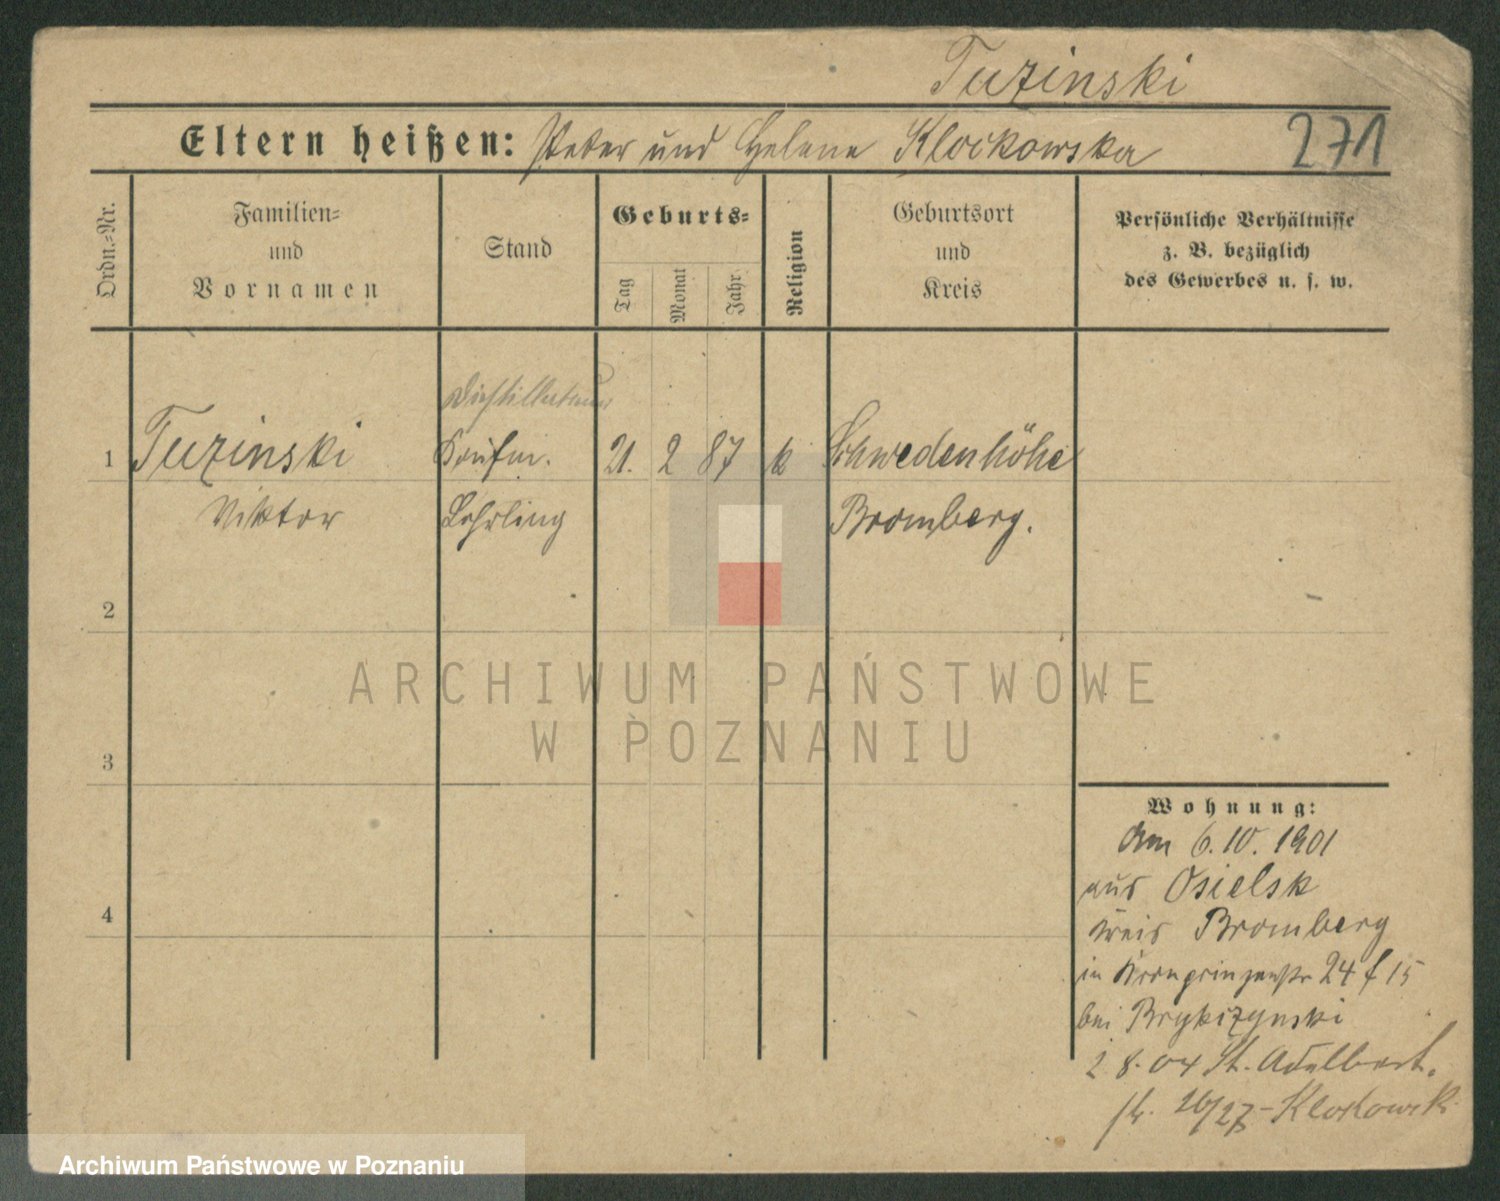 Tuzinski
Eltern heißen: Peter und Helene Klockowska
271
Ordn.-Nr.
Familien-
und
Vornamen
Stand
Geburts-
Tag
Monat
Jahr
Religion
Geburtsort
und
Kreis
Persönliche Verhältnisse
z. B. bezüglich
des Gewerbes u. s. w.
1
Tuzinski
Kaufm.
21.
2
87
k
Schwedenhöhe
Viktor
Lehrling
Bromberg.
2
3
4
Wohnung:
Am 6.10.1901
aus Osielsk
Kreis Bromberg
in Kronprinzenstr 24
bei
2 8. 04 St. Adalbert.
str. 26/27 - Klockowski
ARCHIWUM PAŃSTWOWE
W POZNANIU
Archiwum Państwowe w Poznaniu